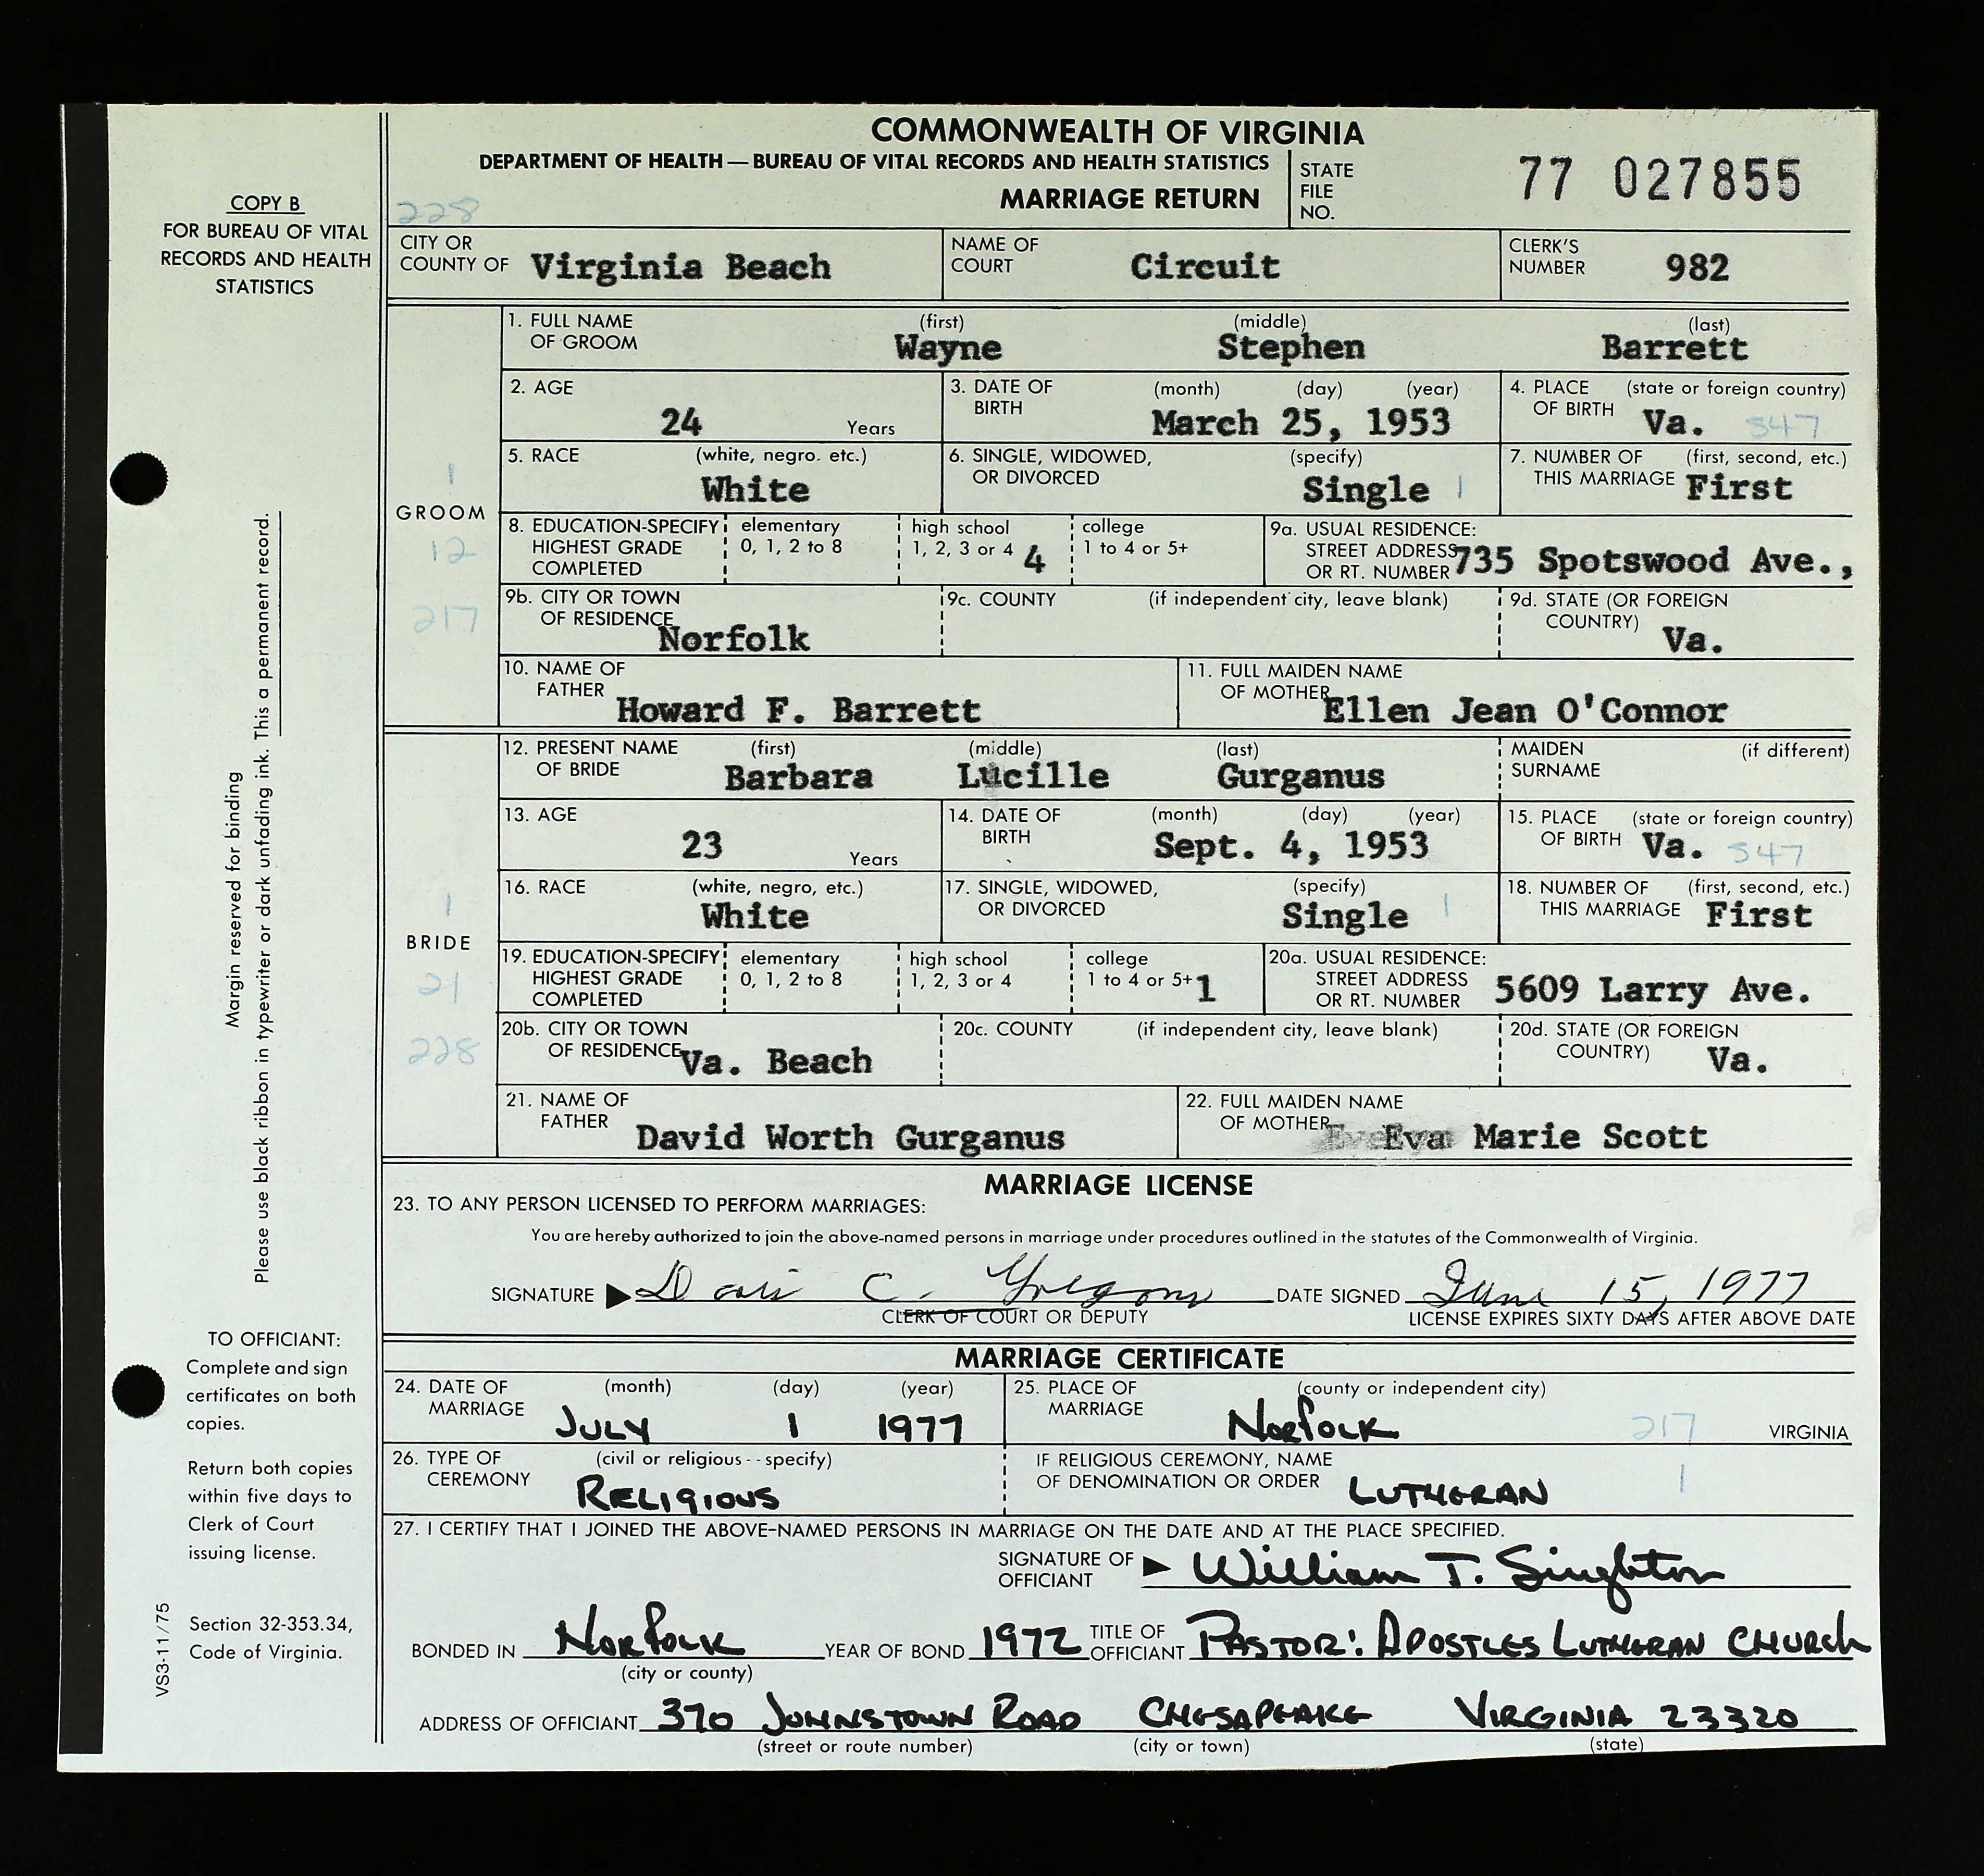 COMMONWEALTH OF VIRGINIA
DEPARTMENT OF HEALTH — BUREAU OF VITAL RECORDS AND HEALTH STATISTICS
MARRIAGE RETURN
STATE FILE NO. 77 027855
228
COPY B
FOR BUREAU OF VITAL
RECORDS AND HEALTH
STATISTICS
CITY OR COUNTY OF Virginia Beach NAME OF COURT Circuit CLERK'S NUMBER 982
GROOM
1
12
217
1. FULL NAME OF GROOM (first) Wayne (middle) Stephen (last) Barrett
2. AGE 24 Years 3. DATE OF BIRTH (month) (day) (year) March 25, 1953 4. PLACE OF BIRTH (state or foreign country) Va. 547
5. RACE (white, negro. etc.) White 6. SINGLE, WIDOWED, OR DIVORCED (specify) Single 1 7. NUMBER OF THIS MARRIAGE (first, second, etc.) First
8. EDUCATION-SPECIFY HIGHEST GRADE COMPLETED elementary 0, 1, 2 to 8 high school 1, 2, 3 or 4 4 college 1 to 4 or 5+ 9a. USUAL RESIDENCE: STREET ADDRESS OR RT. NUMBER 735 Spotswood Ave.,
9b. CITY OR TOWN OF RESIDENCE Norfolk 9c. COUNTY (if independent city, leave blank) 9d. STATE (OR FOREIGN COUNTRY) Va.
10. NAME OF FATHER Howard F. Barrett 11. FULL MAIDEN NAME OF MOTHER Ellen Jean O'Connor
BRIDE
1
21
228
12. PRESENT NAME OF BRIDE (first) Barbara (middle) Lucille (last) Gurganus MAIDEN SURNAME (if different)
13. AGE 23 Years 14. DATE OF BIRTH (month) (day) (year) Sept. 4, 1953 15. PLACE OF BIRTH (state or foreign country) Va. 547
16. RACE (white, negro, etc.) White 17. SINGLE, WIDOWED, OR DIVORCED (specify) Single 1 18. NUMBER OF THIS MARRIAGE (first, second, etc.) First
19. EDUCATION-SPECIFY HIGHEST GRADE COMPLETED elementary 0, 1, 2 to 8 high school 1, 2, 3 or 4 college 1 to 4 or 5+ 1 20a. USUAL RESIDENCE: STREET ADDRESS OR RT. NUMBER 5609 Larry Ave.
20b. CITY OR TOWN OF RESIDENCE Va. Beach 20c. COUNTY (if independent city, leave blank) 20d. STATE (OR FOREIGN COUNTRY) Va.
21. NAME OF FATHER David Worth Gurganus 22. FULL MAIDEN NAME OF MOTHER Eva Marie Scott
MARRIAGE LICENSE
23. TO ANY PERSON LICENSED TO PERFORM MARRIAGES:
You are hereby authorized to join the above-named persons in marriage under procedures outlined in the statutes of the Commonwealth of Virginia.
SIGNATURE C. DATE SIGNED June 15, 1977
CLERK OF COURT OR DEPUTY LICENSE EXPIRES SIXTY DAYS AFTER ABOVE DATE
MARRIAGE CERTIFICATE
24. DATE OF MARRIAGE (month) (day) (year) JULY 1 1977 25. PLACE OF MARRIAGE (county or independent city) NORFOLK 217 VIRGINIA
26. TYPE OF CEREMONY (civil or religious -- specify) RELIGIOUS IF RELIGIOUS CEREMONY, NAME OF DENOMINATION OR ORDER LUTHERAN 1
27. I CERTIFY THAT I JOINED THE ABOVE-NAMED PERSONS IN MARRIAGE ON THE DATE AND AT THE PLACE SPECIFIED.
SIGNATURE OF OFFICIANT William T. Singleton
BONDED IN NORFOLK YEAR OF BOND 1972 TITLE OF OFFICIANT PASTOR: APOSTLES LUTHERAN CHURCH
(city or county)
ADDRESS OF OFFICIANT 370 JOHNSTOWN ROAD CHESAPEAKE VIRGINIA 23320
(street or route number) (city or town) (state)
Margin reserved for binding
Please use black ribbon in typewriter or dark unfading ink. This a permanent record.
TO OFFICIANT:
Complete and sign
certificates on both
copies.
Return both copies
within five days to
Clerk of Court
issuing license.
Section 32-353.34,
Code of Virginia.
VS3-11/75